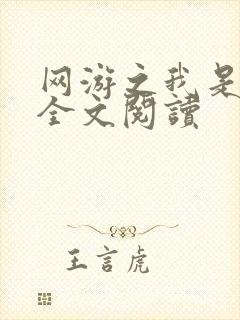 网游之我是
全文閱讀
王言虎